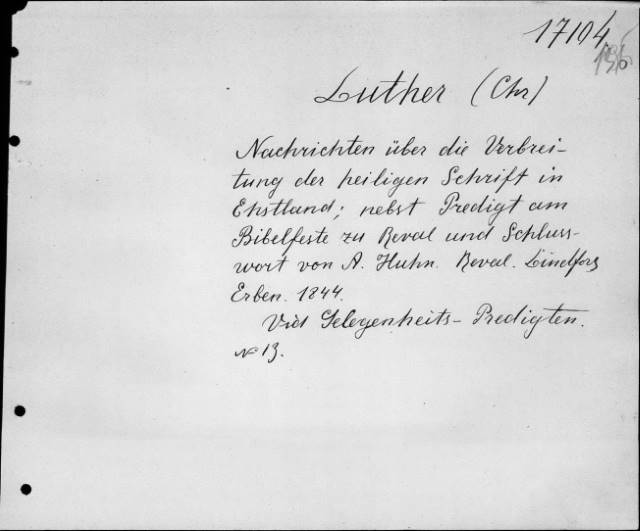 17104
Luther (Chr)
Nachrichten über die Verbrei-
tung der heiligen Schrift in
Ehstland; nebst Predigt am
Bibelfeste zu Reval und Schluss-
wort von A. Huhn. Reval. Lindfors
Erben. 1844.
Vid Gelegenheits-Predigten.
№ 13.